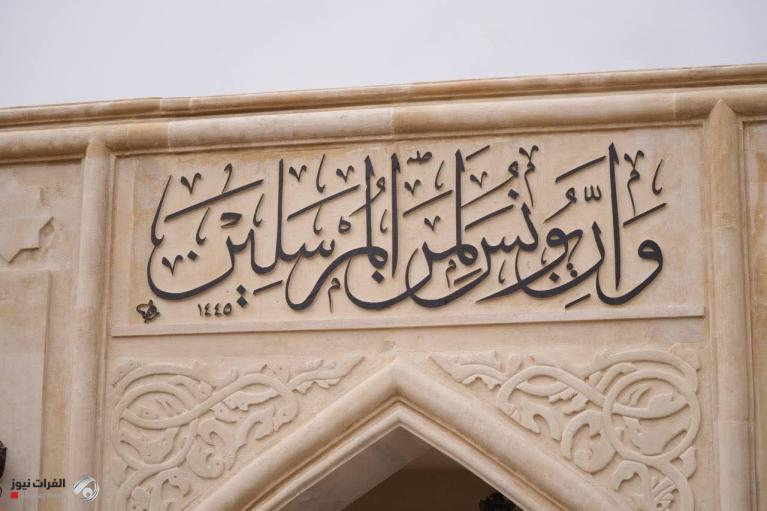 وَإِنَّ يُونُسَ لَمِنَ الْمُرْسَلِينَ
١٤٤٥
الفرات نيوز